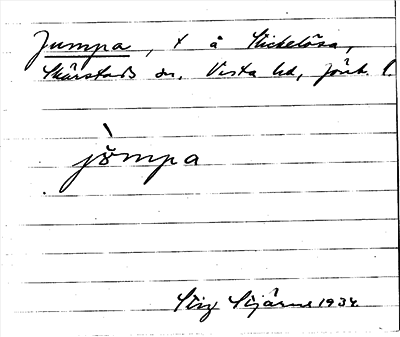 Jumpa, t å Stickelösa,
Skärstads sn, Vista hd, Jönk. l.
jömpa
Stig Stjärne 1934.